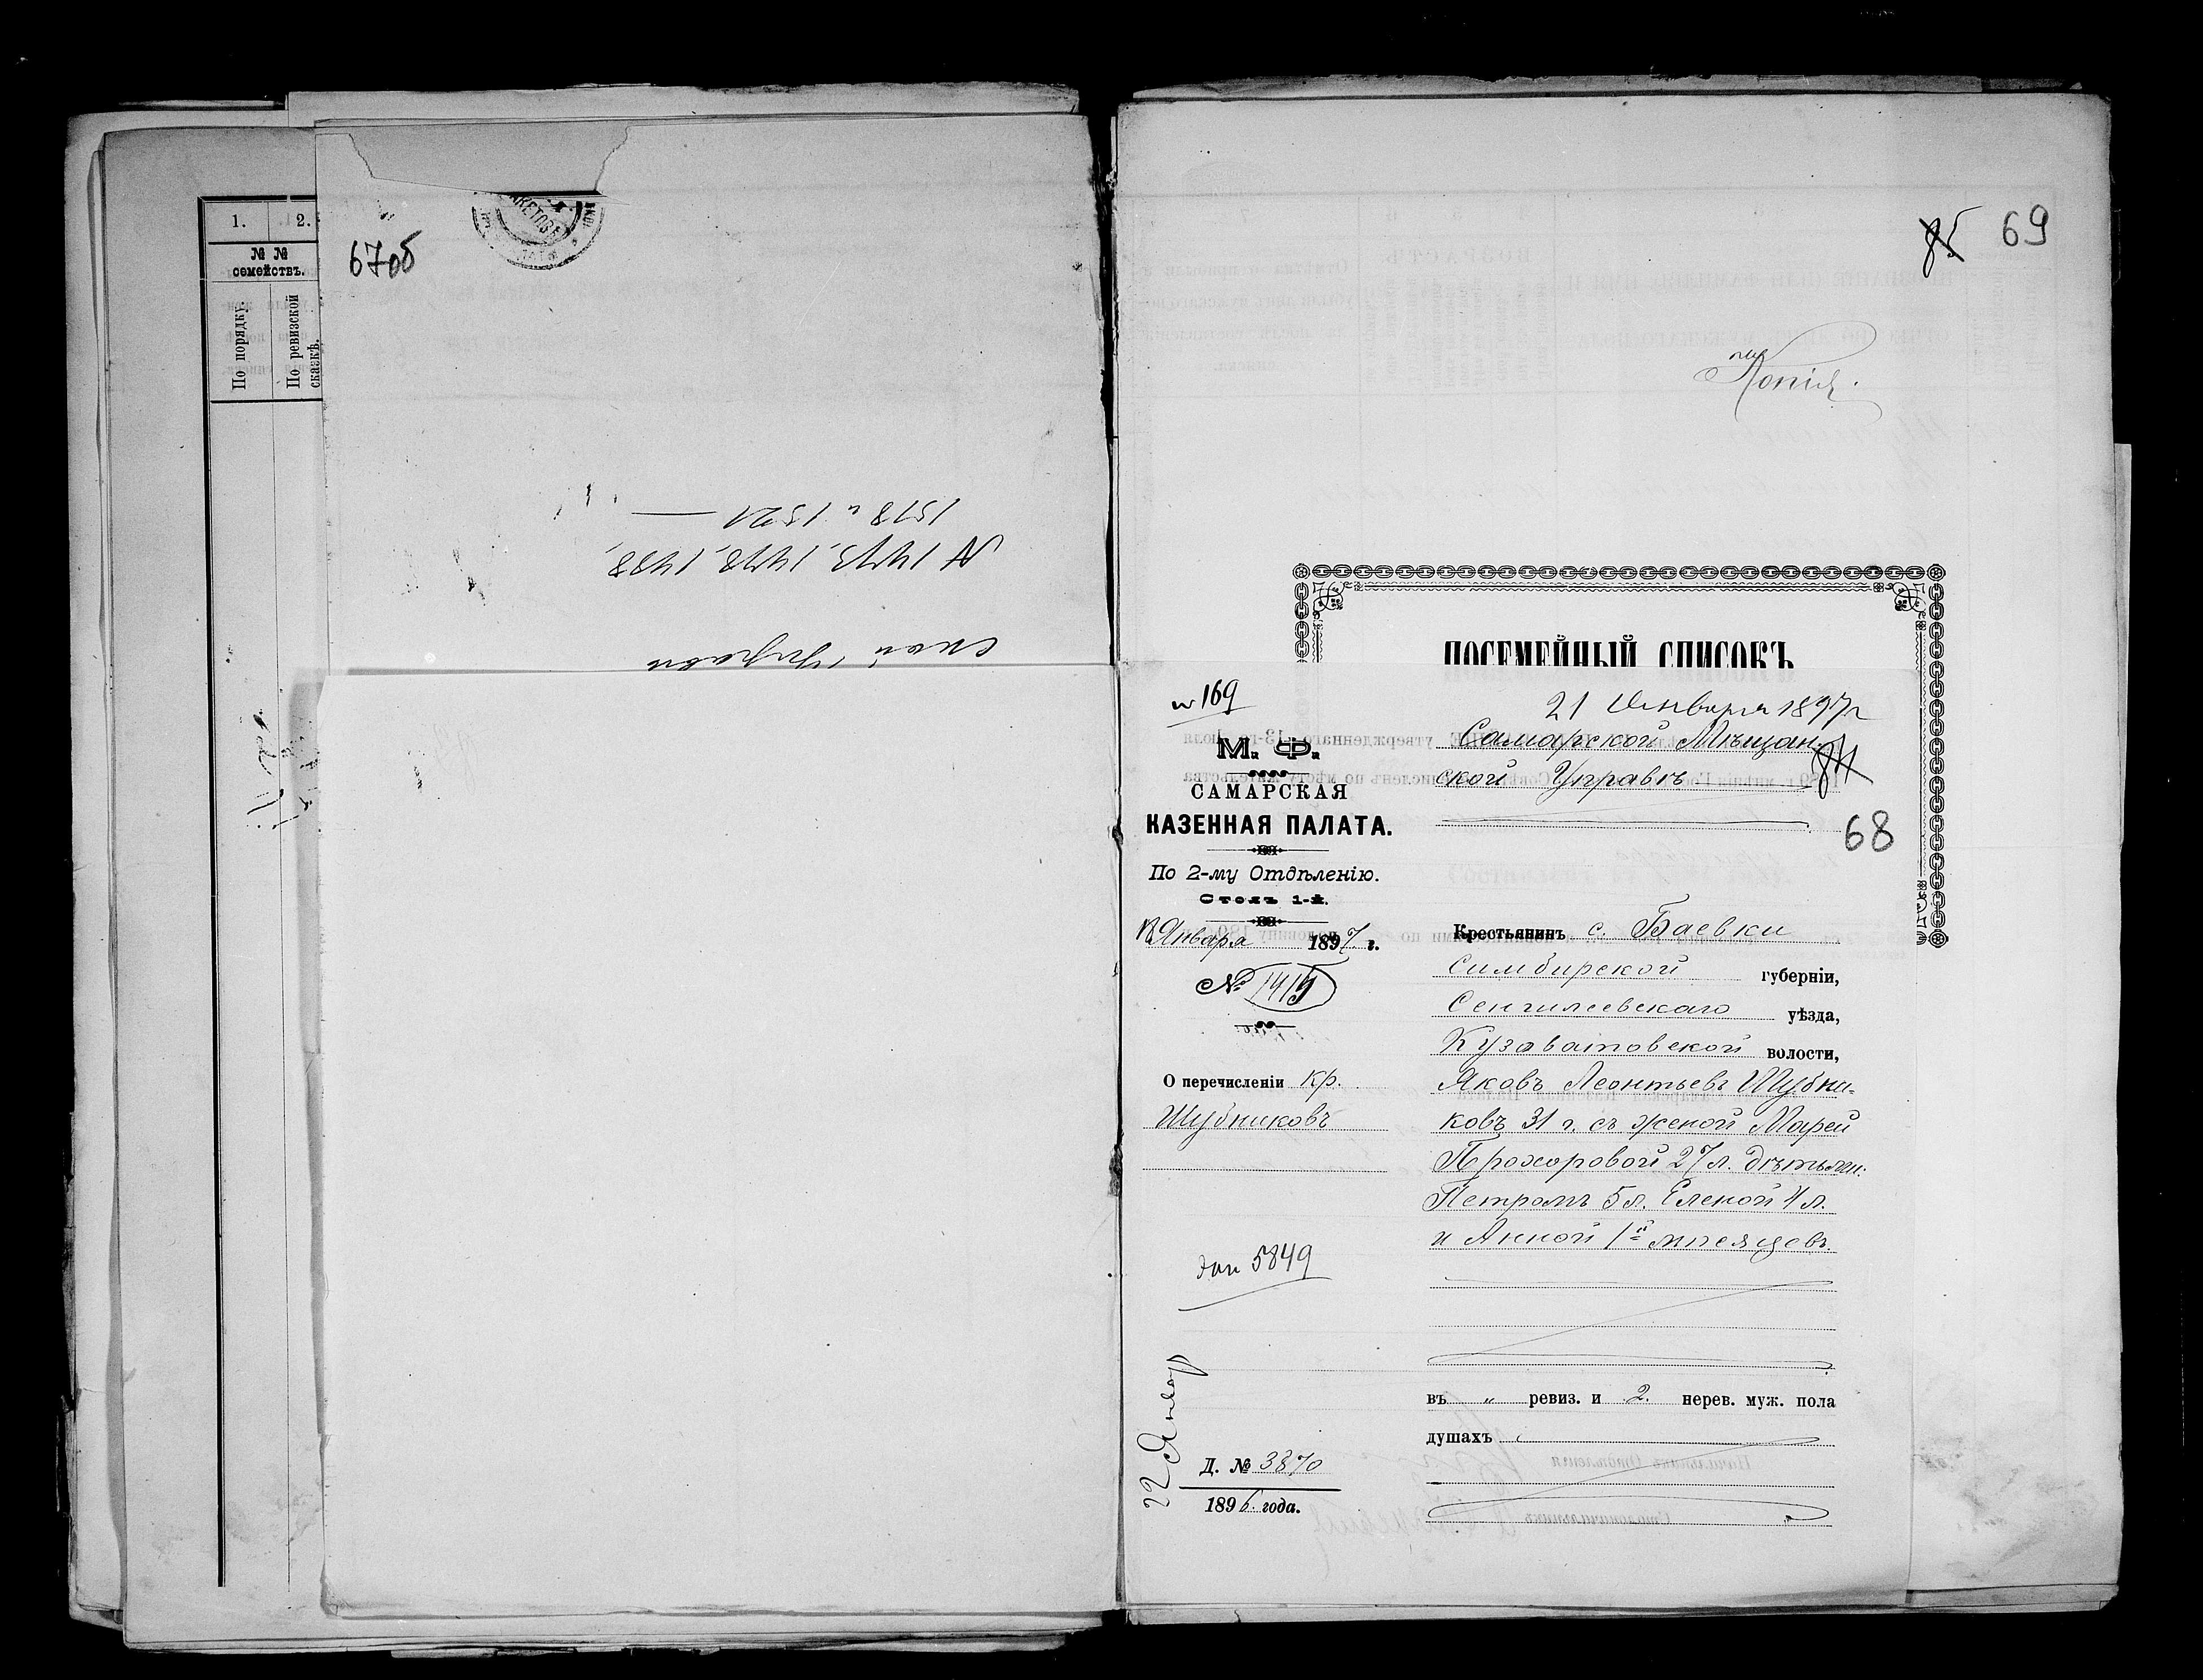 1. 2.
№ №
семействъ.
По порядку.
По ревизской
сказкѣ.
67об
№ 1473, 1478, 1488,
1518 и 1521
ской Управы
85 69
Копія.
ПОСЕМЕЙНЫЙ СПИСОКЪ
№ 169
М. Ф.
САМАРСКАЯ
КАЗЕННАЯ ПАЛАТА.
По 2-му Отдѣленію.
Столъ 1-й.
Января 1897 г.
№ 1415
О перечисленіи кр.
Шубниковъ
5849
22 Январ
Д. № 3870
1896 года.
21 Января 1897 г
Самарской Мѣщан-
ской Управѣ
84
68
Крестьянинъ с. Баевки
Симбирской губерніи,
Сенгилеевскаго уѣзда,
Кузоватовской волости,
Яковъ Леонтьевъ Шубни-
ковъ 31 г. съ женой Марей
Прохоровой 27 л. дѣтьми:
Петромъ 5 л. Еленой 4 л.
и Анной 1й мѣсяцевъ.
въ „ ревиз. и 2. нерев. муж. пола
душахъ